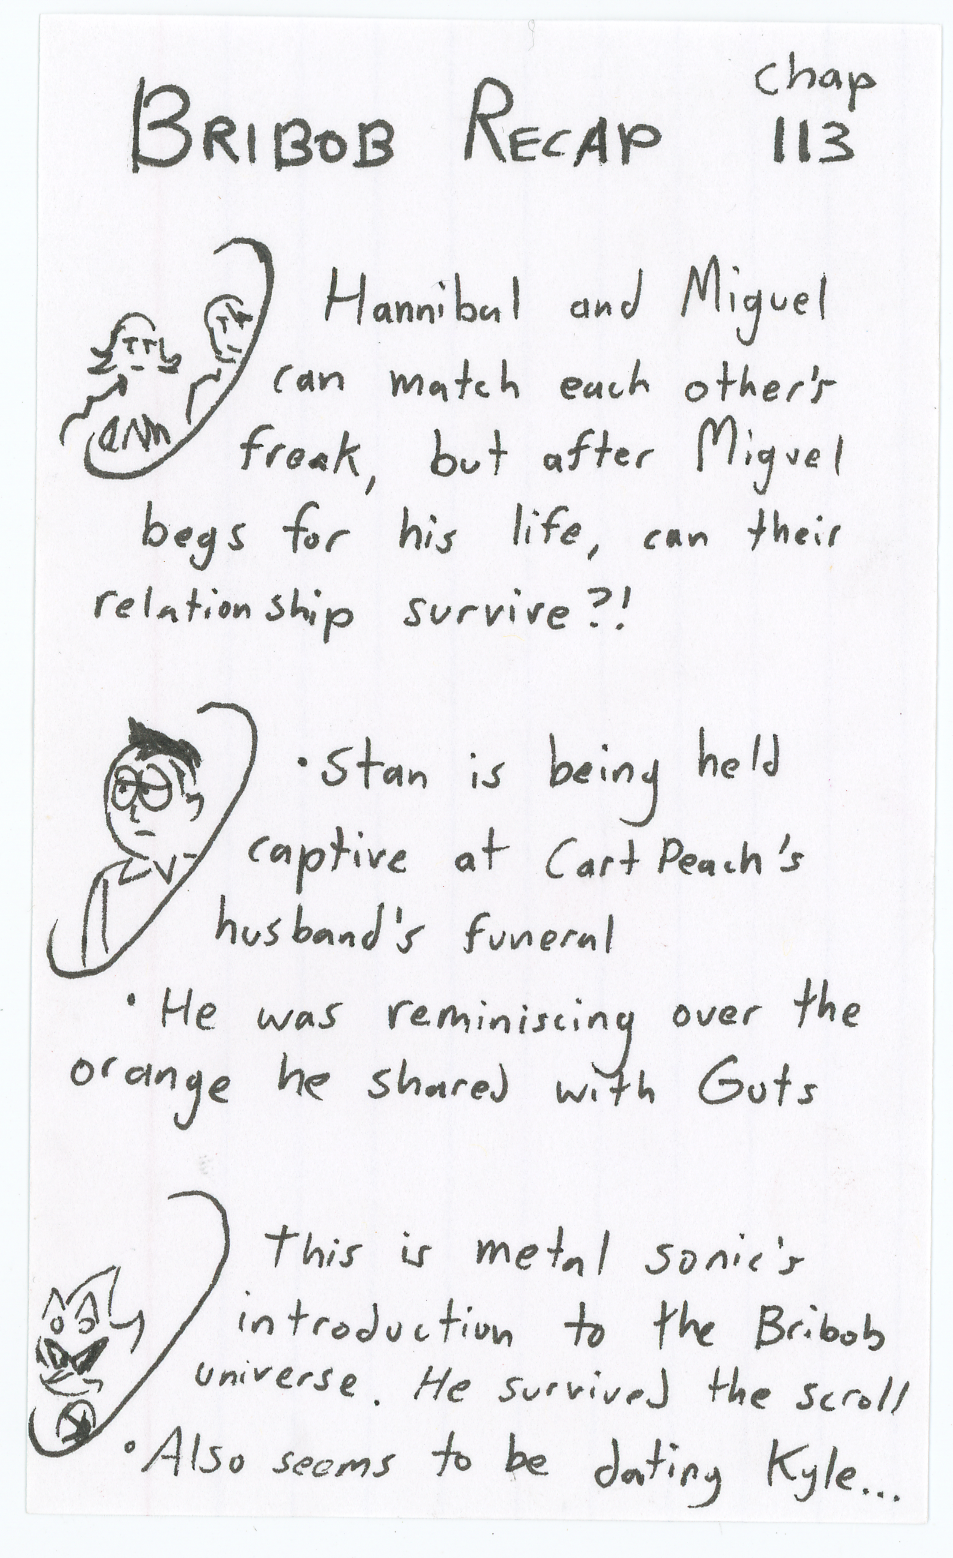 BRIBOB RECAP
chap
113
Hannibal and Miguel
can match each other's
freak, but after Miguel
begs for his life, can their
relationship survive?!
• Stan is being held
captive at Cart Peach's
husband's funeral
• He was reminiscing over the
orange he shared with Guts
This is metal sonic's
introduction to the Bribob
universe. He survived the scroll
• Also seems to be dating Kyle...